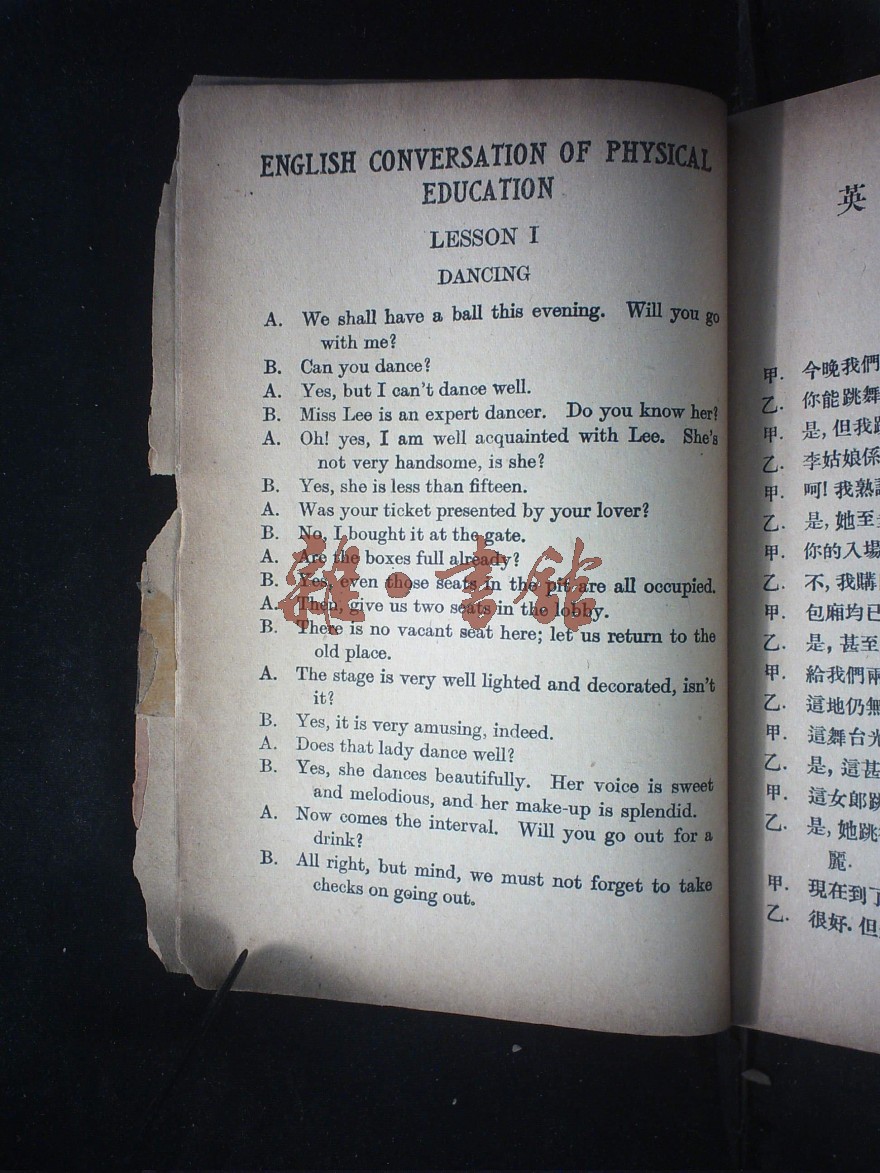 ENGLISH CONVERSATION OF PHYSICAL
EDUCATION
LESSON I
DANCING
A. We shall have a ball this evening. Will you go
with me?
B. Can you dance?
A. Yes, but I can't dance well.
B. Miss Lee is an expert dancer. Do you know her?
A. Oh! yes, I am well acquainted with Lee. She's
not very handsome, is she?
B. Yes, she is less than fifteen.
A. Was your ticket presented by your lover?
B. No, I bought it at the gate.
A. Are the boxes full already?
B. Yes, even those seats in the pit are all occupied.
A. Then, give us two seats in the lobby.
B. There is no vacant seat here; let us return to the
old place.
A. The stage is very well lighted and decorated, isn't
it?
B. Yes, it is very amusing, indeed.
A. Does that lady dance well?
B. Yes, she dances beautifully. Her voice is sweet
and melodious, and her make-up is splendid.
A. Now comes the interval. Will you go out for a
drink?
B. All right, but mind, we must not forget to take
checks on going out.
雜·書館
英
甲. 今晚我們
乙. 你能跳舞
甲. 是, 但我
乙. 李姑娘係
甲. 呵! 我熟
乙. 是, 她至
甲. 你的入場
乙. 不, 我購
甲. 包廂均已
乙. 是, 甚至
甲. 給我們兩
乙. 這地仍無
甲. 這舞台光
乙. 是, 這甚
甲. 這女郎跳
乙. 是, 她跳
麗.
甲. 現在到了
乙. 很好. 但